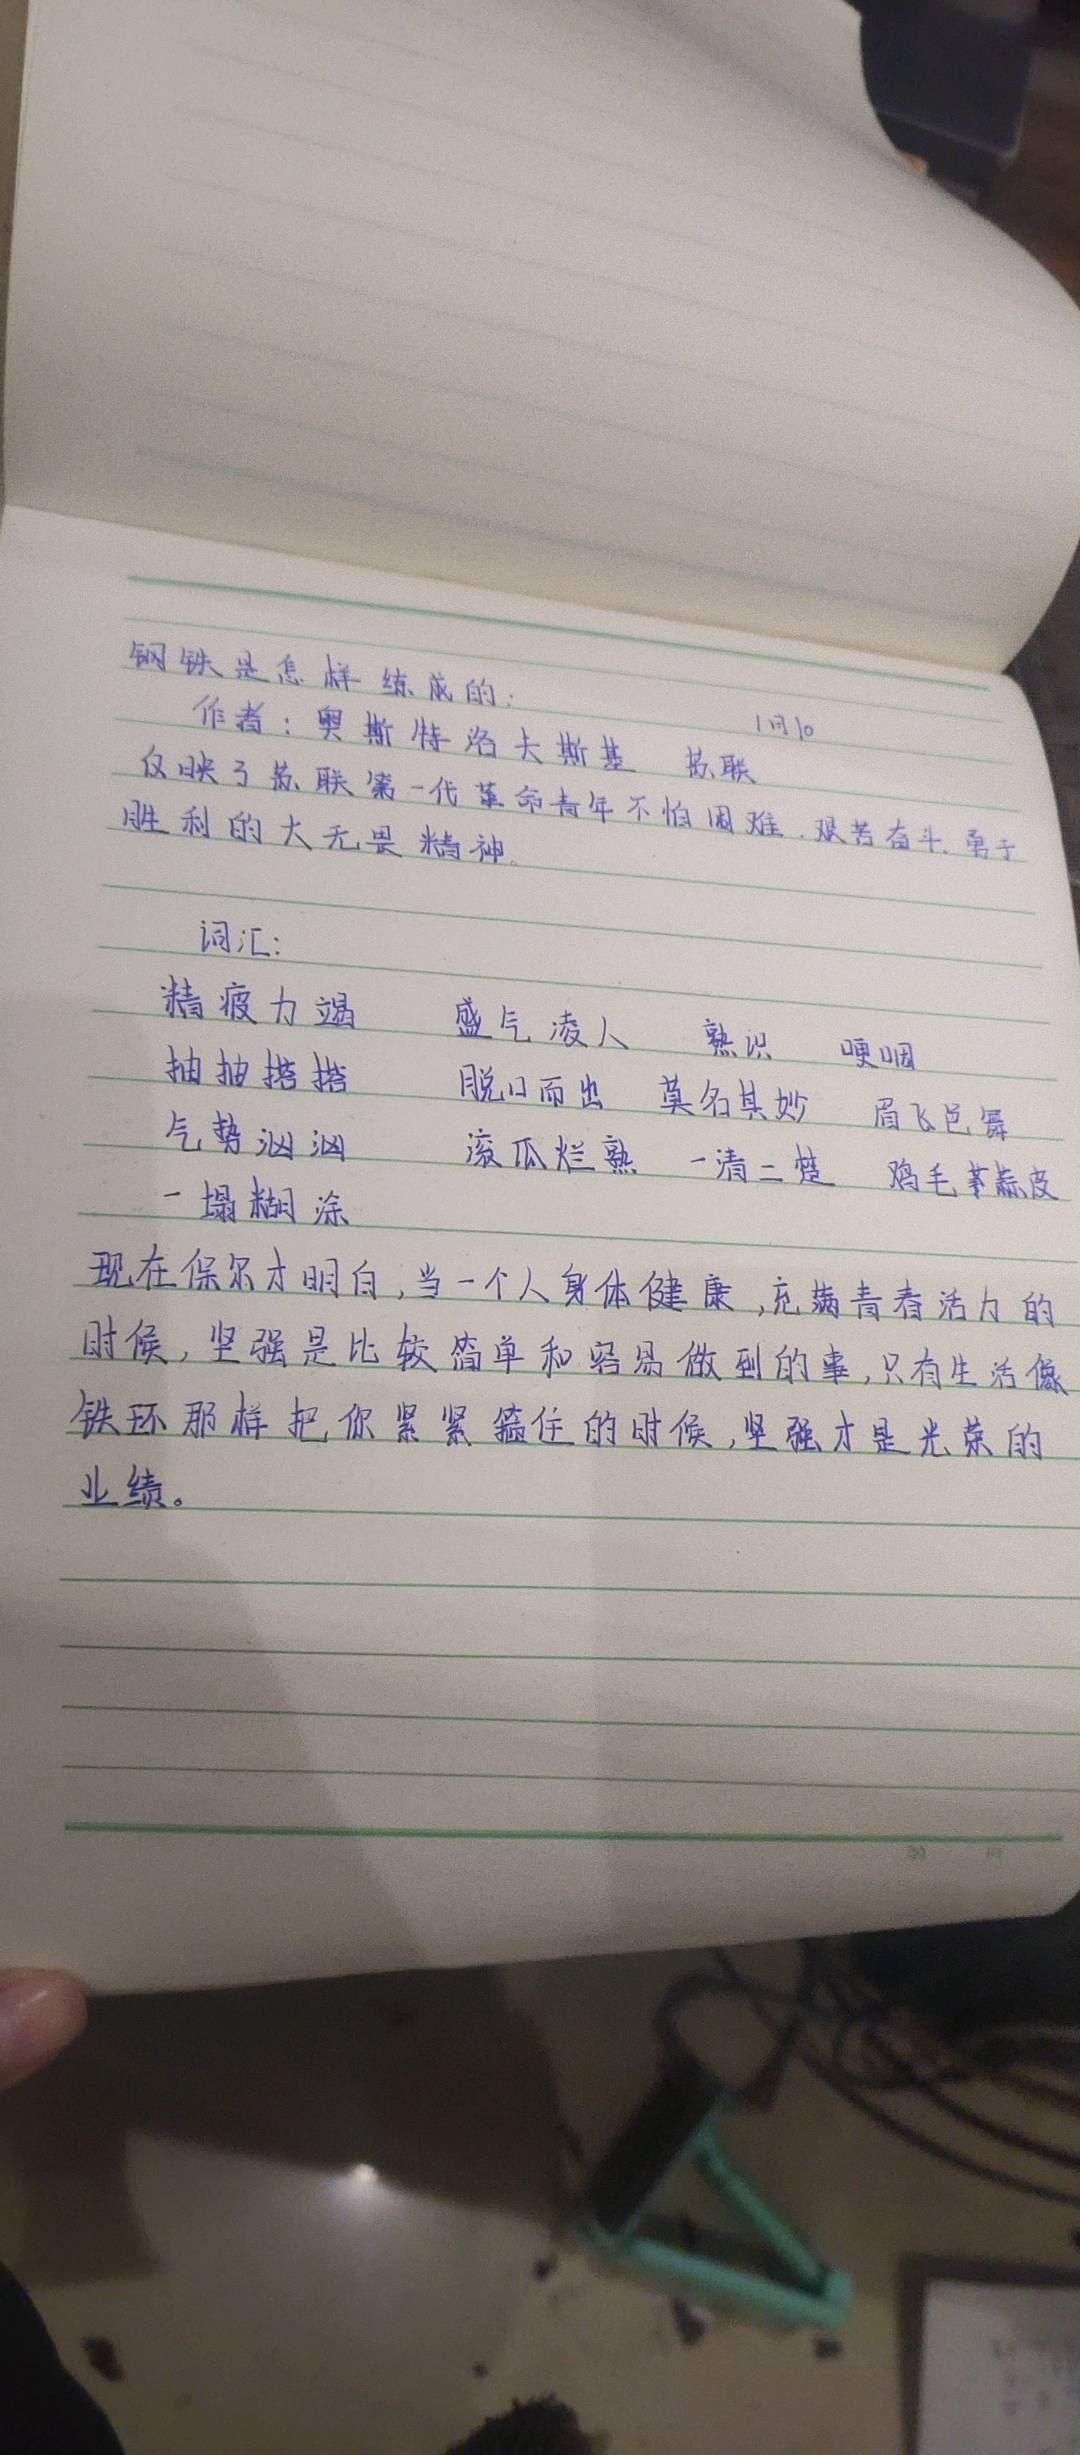 钢铁是怎样练成的:
1月10
作者:奥斯特洛夫斯基 苏联
反映了苏联第一代革命青年不怕困难、艰苦奋斗、勇于
胜利的大无畏精神。
词汇:
精疲力竭 盛气凌人 熟识 哽咽
抽抽搭搭 脱口而出 莫名其妙 眉飞色舞
气势汹汹 滚瓜烂熟 一清二楚 鸡毛蒜皮
一塌糊涂
现在保尔才明白,当一个人身体健康,充满青春活力的
时候,坚强是比较简单和容易做到的事,只有生活像
铁环那样把你紧紧箍住的时候,坚强才是光荣的
业绩。